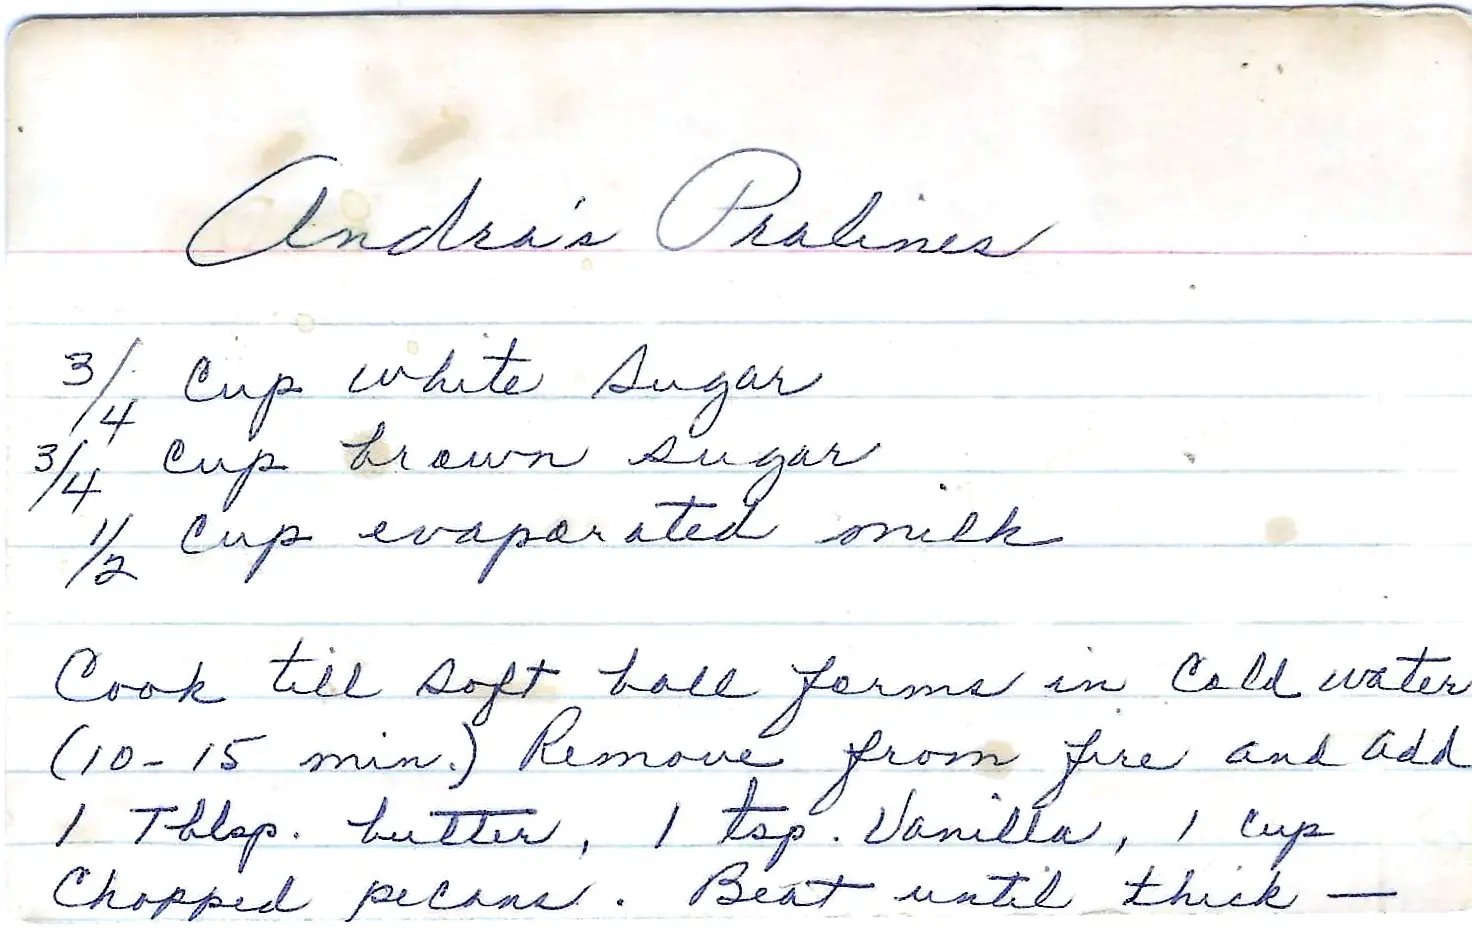 Andra's Pralines
3/4 cup white sugar
3/4 cup brown sugar
1/2 cup evaporated milk
Cook till soft ball forms in cold water
(10-15 min.) Remove from fire and add
1 Tblsp. butter, 1 tsp. Vanilla, 1 cup
Chopped pecans. Beat until thick —